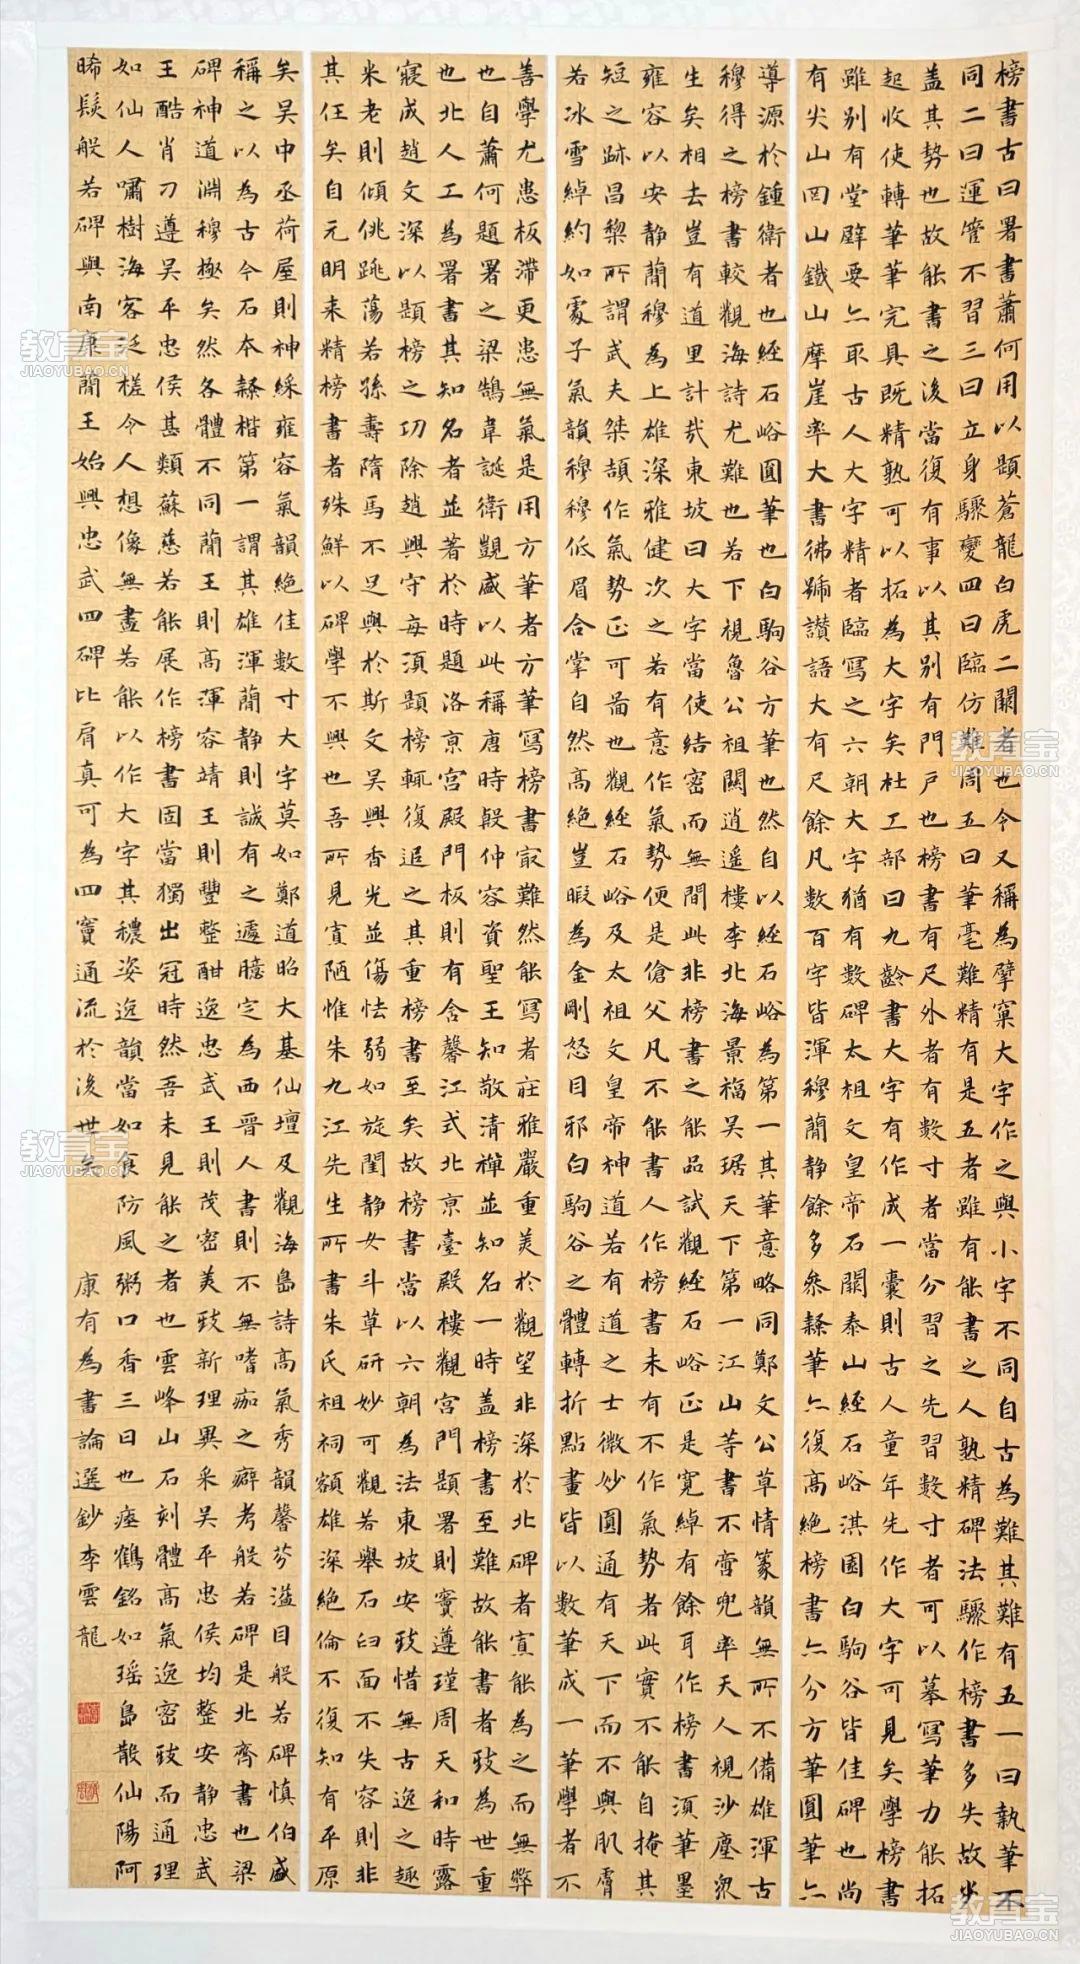 榜書古曰署書蕭何用以題蒼龍白虎二闕者也今又稱為擘窠大字作之與小字不同自古為難其難有五一曰執筆不
同二曰運管不習三曰立身驟變四曰臨仿難周五曰筆毫難精有是五者雖有能書之人熟精碑法驟作榜書多失故步
蓋其勢也故能書之後當復有事以其別有門戶也榜書有尺外者有數寸者當分習之先習數寸者可以摹寫筆力能拓
起收使轉筆筆完具既精熟可以拓為大字矣杜工部曰九齡書大字有作成一囊則古人童年先作大字可見矣學榜書
雖別有堂壁要亦取古人大字精者臨寫之六朝大字猶有數碑太祖文皇帝石闕泰山經石峪淇園白駒谷皆佳碑也尚
有尖山罔山鐵山摩崖率大書佛號讚語大有尺餘凡數百字皆渾穆簡靜餘多參隸筆亦復高絕榜書亦分方筆圓筆亦
導源於鍾衛者也經石峪圓筆也白駒谷方筆也然自以經石峪為第一其筆意略同鄭文公草情篆韻無所不備雄渾古
穆得之榜書較觀海詩尤難也若下視魯公祖關逍遙樓李北海景福吳琚天下第一江山等書不啻兜率天人視沙塵眾
生矣相去豈有道里計哉東坡曰大字當使結密而無間此非榜書之能品試觀經石峪正是寬綽有餘耳作榜書須筆墨
雍容以安靜簡穆為上雄深雅健次之若有意作氣勢便是傖父凡不能書人作榜書未有不作氣勢者此實不能自掩其
短之跡昌黎所謂武夫桀頡作氣勢正可啚也觀經石峪及太祖文皇帝神道若有道之士微妙圓通有天下而不與肌膚
若冰雪綽約如處子氣韻穆穆低眉合掌自然高絕豈暇為金剛怒目邪白駒谷之體轉折點畫皆以數筆成一筆學者不
善學尤患板滯更患無氣是用方筆者方筆寫榜書最難然能寫者莊雅嚴重美於觀望非深於北碑者寔能為之而無弊
也自蕭何題署之梁鵠韋誕衛覬盛以此稱唐時殷仲容資聖王知敬清禪並知名一時蓋榜書至難故能書者致為世重
也北人工為署書其知名者並著於時題洛京宮殿門板則有含馨江式北京臺殿樓觀宮門題署則竇遵瑾周天和時露
寢成趙文深以題榜之功除趙興守每須題榜輒復追之其重榜書至矣故榜書當以六朝為法東坡安致惜無古逸之趣
米老則傾佻跳蕩若孫壽隋馬不足與於斯文吳興香光並傷怯弱如旋閨靜女斗草研妙可觀若舉石臼面不失容則非
其任矣自元明來精榜書者殊鮮以碑學不興也吾所見寔陋惟朱九江先生所書朱氏祖祠額雄深絕倫不復知有平原
矣吳中丞荷屋則神綵雍容氣韻絕佳數寸大字莫如鄭道昭大基仙壇及觀海島詩高氣秀韻馨芬溢目般若碑慎伯盛
稱之以為古今石本隸楷第一謂其雄渾簡靜則誠有之遽臆定為西晉人書則不無嗜痂之癖考般若碑是北齊書也梁
碑神道淵穆極矣然各體不同簡王則高渾容靖王則豐整酣逸忠武王則茂密美致新理異采吳平忠侯均整安靜忠武
王酷肖刁遵吳平忠侯甚類蘇慈若能展作榜書固當獨出冠時然吾未見能之者也雲峰山石刻體高氣逸密致而通理
如仙人嘯樹海客泛槎令人想像無盡若能以作大字其穠姿逸韻當如食防風粥口香三日也瘞鶴銘如瑤島散仙陽阿
晞髮般若碑與南康簡王始興忠武四碑比肩真可為四寶通流於後世矣 康有為書論選鈔李雲龍
教育宝
JIAOYUBAO.CN
教育宝
JIAOYUBAO.CN
教育宝
JIAOYUBAO.CN
教育宝
JIAOYUBAO.CN